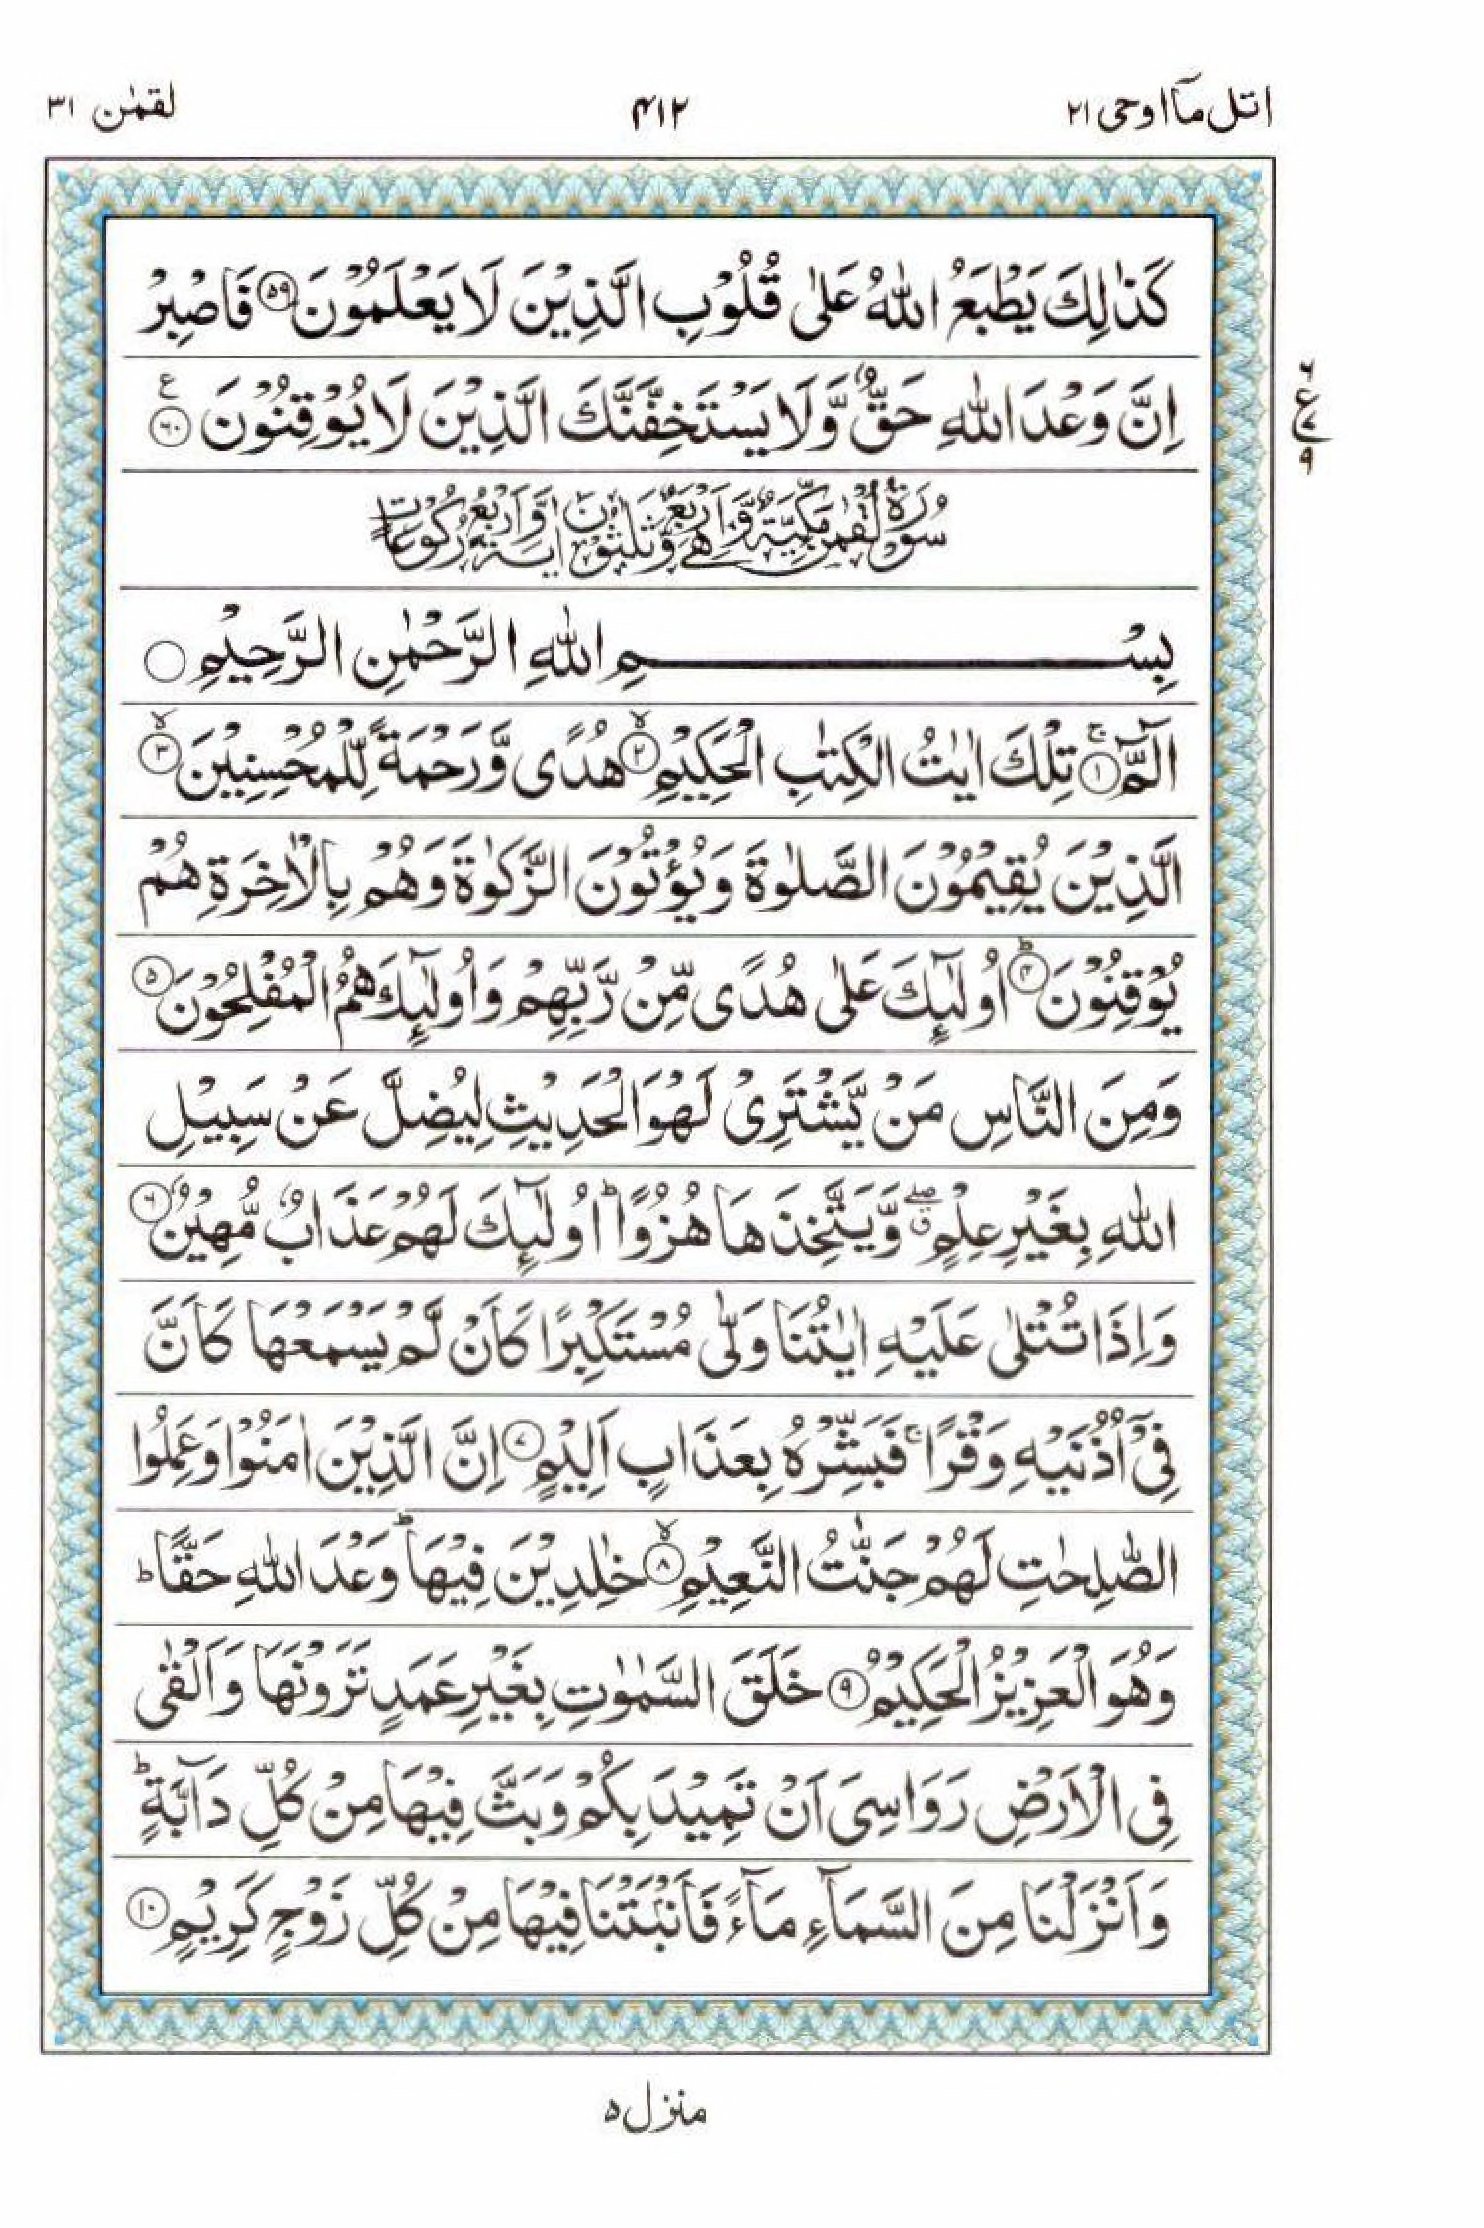 اتل مآ اوحی ۲۱
۴۱۲
لقمٰن ۳۱
كَذٰلِكَ يَطْبَعُ اللّٰهُ عَلٰى قُلُوْبِ الَّذِيْنَ لَا يَعْلَمُوْنَ ۵۹ فَاصْبِرْ
اِنَّ وَعْدَ اللّٰهِ حَقٌّ وَّلَا يَسْتَخِفَّنَّكَ الَّذِيْنَ لَا يُوْقِنُوْنَ ۶۰ ع
۶
ع
۹
سُوْرَةُ لُقْمٰنَ مَكِّيَّةٌ وَّهِيَ اَرْبَعٌ وَّثَلٰثُوْنَ اٰيَةً وَّاَرْبَعُ رُكُوْعَاتٍ
بِسْمِ اللّٰهِ الرَّحْمٰنِ الرَّحِيْمِ
الٓمّٓ ۚ ۱ تِلْكَ اٰيٰتُ الْكِتٰبِ الْحَكِيْمِ ۙ ۲ هُدًى وَّرَحْمَةً لِّلْمُحْسِنِيْنَ ۙ ۳
الَّذِيْنَ يُقِيْمُوْنَ الصَّلٰوةَ وَيُؤْتُوْنَ الزَّكٰوةَ وَهُمْ بِالْاٰخِرَةِ هُمْ
يُوْقِنُوْنَ ؕ ۴ اُولٰٓئِكَ عَلٰى هُدًى مِّنْ رَّبِّهِمْ وَاُولٰٓئِكَ هُمُ الْمُفْلِحُوْنَ ۵
وَمِنَ النَّاسِ مَنْ يَّشْتَرِيْ لَهْوَ الْحَدِيْثِ لِيُضِلَّ عَنْ سَبِيْلِ
اللّٰهِ بِغَيْرِ عِلْمٍ ۖق وَّيَتَّخِذَهَا هُزُوًا ؕ اُولٰٓئِكَ لَهُمْ عَذَابٌ مُّهِيْنٌ ۶
وَاِذَا تُتْلٰى عَلَيْهِ اٰيٰتُنَا وَلّٰى مُسْتَكْبِرًا كَاَنْ لَّمْ يَسْمَعْهَا كَاَنَّ
فِيْٓ اُذُنَيْهِ وَقْرًا ۚ فَبَشِّرْهُ بِعَذَابٍ اَلِيْمٍ ۷ اِنَّ الَّذِيْنَ اٰمَنُوْا وَعَمِلُوا
الصّٰلِحٰتِ لَهُمْ جَنّٰتُ النَّعِيْمِ ۙ ۸ خٰلِدِيْنَ فِيْهَا ؕ وَعْدَ اللّٰهِ حَقًّا ؕ
وَهُوَ الْعَزِيْزُ الْحَكِيْمُ ۹ خَلَقَ السَّمٰوٰتِ بِغَيْرِ عَمَدٍ تَرَوْنَهَا وَاَلْقٰى
فِي الْاَرْضِ رَوَاسِيَ اَنْ تَمِيْدَ بِكُمْ وَبَثَّ فِيْهَا مِنْ كُلِّ دَآبَّةٍ ؕ
وَاَنْزَلْنَا مِنَ السَّمَآءِ مَآءً فَاَنْۢبَتْنَا فِيْهَا مِنْ كُلِّ زَوْجٍ كَرِيْمٍ ۱۰
منزل ۵